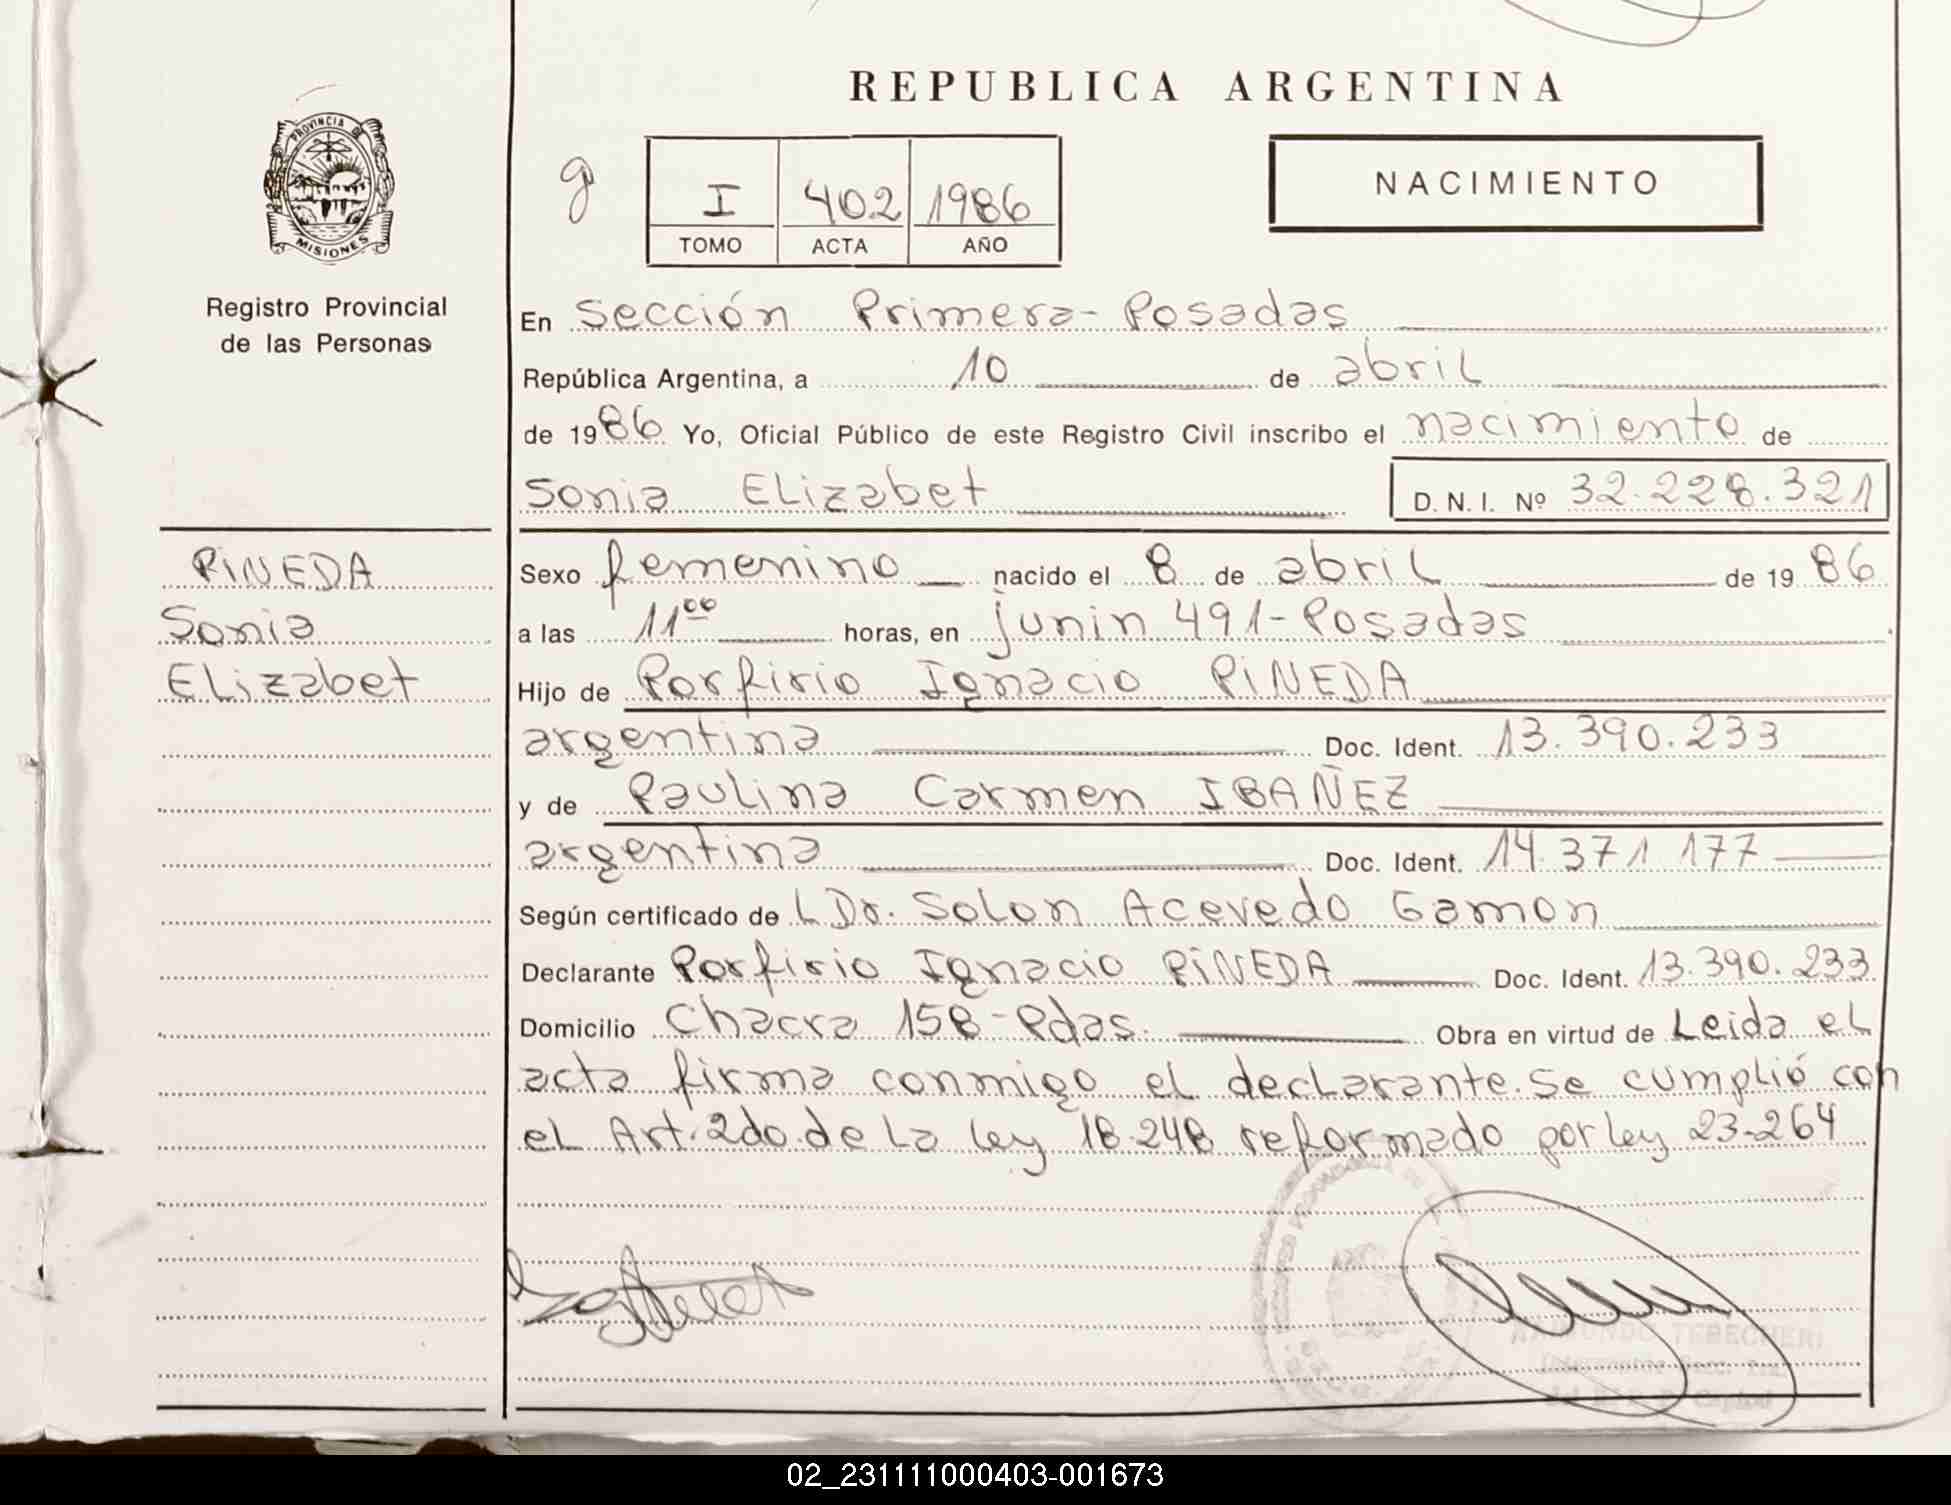 REPUBLICA ARGENTINA
PROVINCIA DE
MISIONES
Registro Provincial
de las Personas
g
I 402 1986
TOMO ACTA AÑO
NACIMIENTO
En Sección Primera - Posadas
República Argentina, a 10 de abril
de 1986 Yo, Oficial Público de este Registro Civil inscribo el nacimiento de
Sonia Elizabet D. N. I. Nº 32.228.321
PiNEDA
Sonia
Elizabet
Sexo femenino nacido el 8 de abril de 1986
a las 11⁰⁰ horas, en junin 491 - Posadas
Hijo de Porfirio Ignacio PiNEDA
argentina Doc. Ident. 13.390.233
y de Paulina Carmen IBAÑEZ
argentina Doc. Ident. 14.371.177
Según certificado de L Dr. Solon Acevedo Gamon
Declarante Porfirio Ignacio PiNEDA Doc. Ident. 13.390.233
Domicilio Chacra 158 - Pdas. Obra en virtud de Leida el
acta firma conmigo el declarante. Se cumplió con
el Art. 2do. de La Ley 18.248 reformado por ley 23-264
02_231111000403-001673